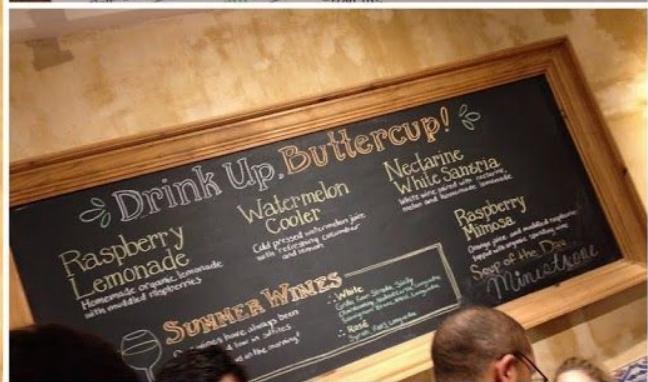 Drink Up, Buttercup!
Raspberry
Lemonade
Homemade organic lemonade
with muddled raspberries
Watermelon
Cooler
Cold pressed watermelon juice
with refreshing cucumber
and lemon
Nectarine
White Sangria
White wine paired with nectarine,
melon and homemade lemonade
Raspberry
Mimosa
Orange juice and muddled raspberries
topped with organic sparkling wine
Soup of the Day
Minestrone
SUMMER WINES
wines have always been
low in sulfites
in the morning!
White
Rosé
Syrah